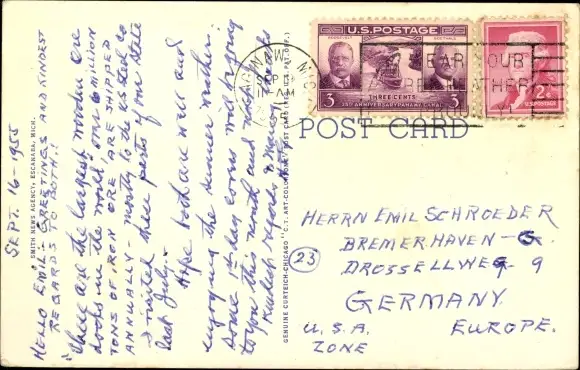 SEPT. 16-1955
HELLO EMIL: GREETINGS AND KINDEST
REGARDS TO BOTH!!
"These are the largest wooden ore
docks in the world, over 6 million
TONS OF IRON ORE ARE SHIPPED
ANNUALLY - mostly to the US steel Co
I visited these parts of our State
last July.
Hope both are well and
enjoying the summer weather.
Some
to you this month and
Kindest regards
SMITH NEWS AGENCY, ESCANABA, MICH.
GENUINE CURTEICH-CHICAGO "C.T. ART-COLORTONE" POST CARD (REG. U.S. PAT. OFF.)
SAGINAW, MICH
SEP
AM
U.S. POSTAGE
ROOSEVELT
GOETHALS
3
THREE CENTS
3
25TH ANNIVERSARY PANAMA CANAL
2¢
U.S. POSTAGE
POST CARD
HERRN EMIL SCHROEDER
(23)
BREMERHAVEN-G.
DROSSELLWEG 9
GERMANY
U.S.A.
EUROPE.
ZONE